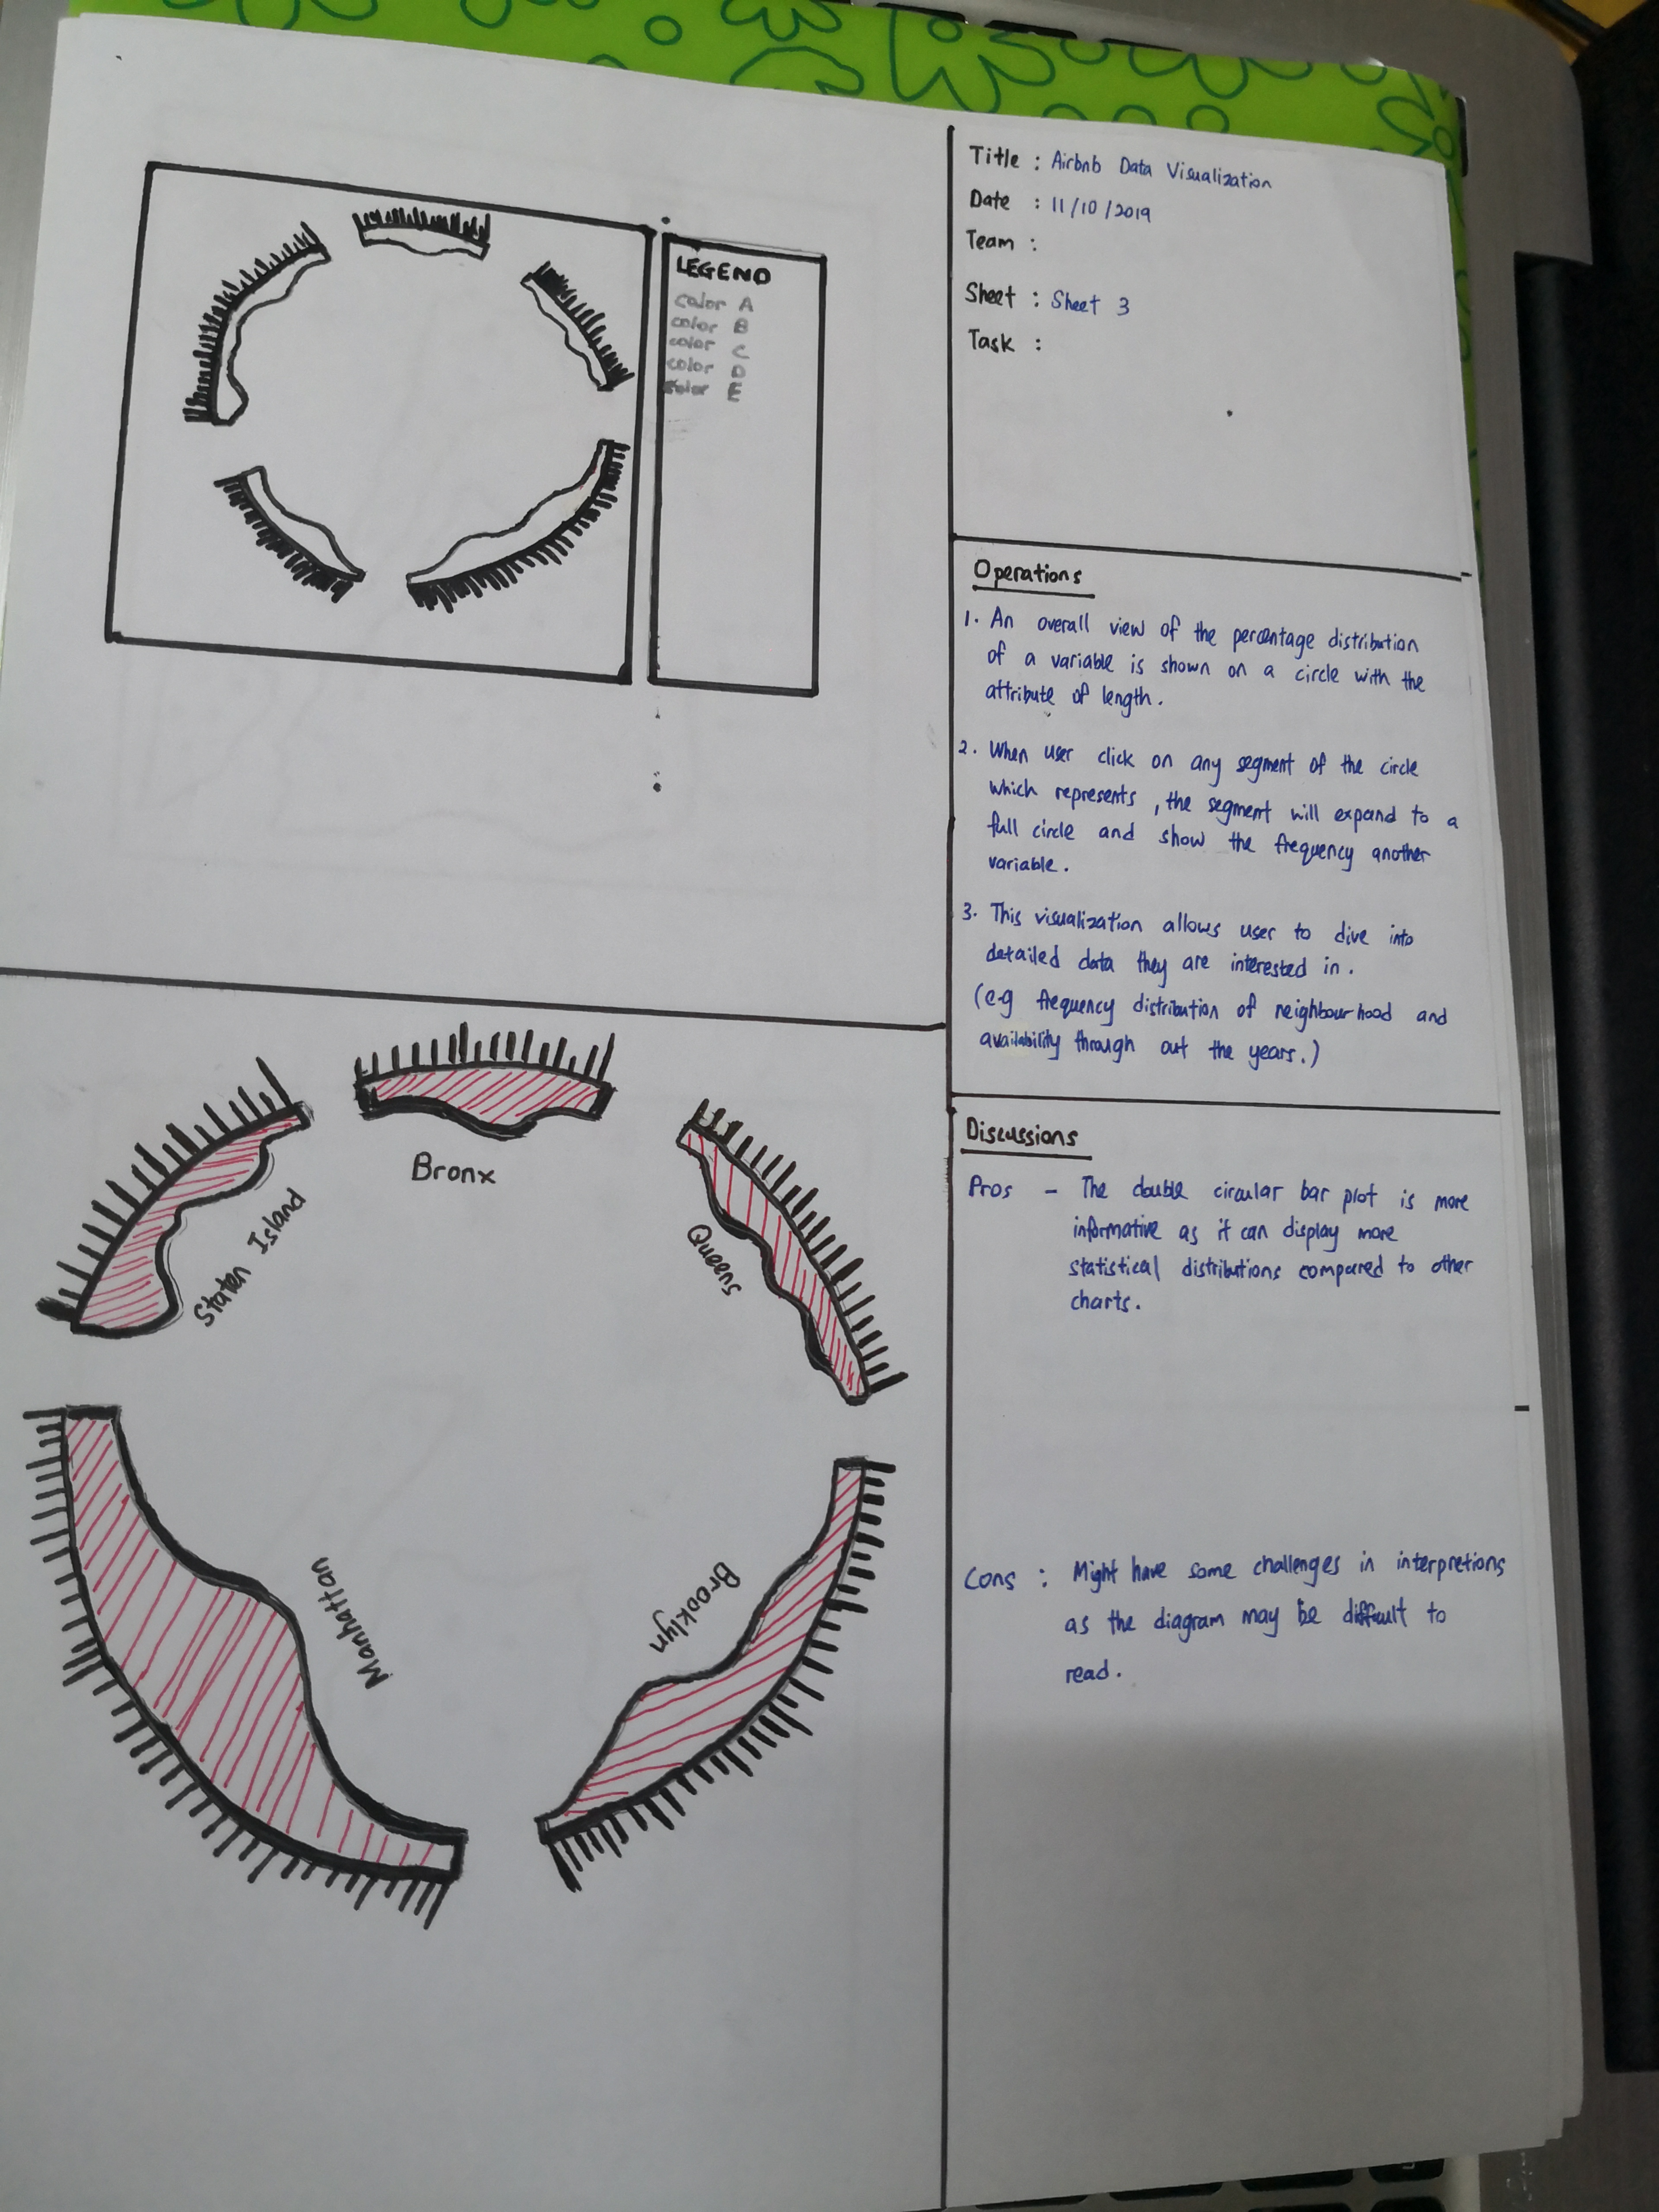 LEGEND
color A
color B
color C
color D
color E
Bronx
Staten Island
Queens
Manhattan
Brooklyn
Title : Airbnb Data Visualization
Date : 11/10/2019
Team :
Sheet : Sheet 3
Task :
Operations
1. An overall view of the percentage distribution
of a variable is shown on a circle with the
attribute of length.
2. When user click on any segment of the circle
which represents , the segment will expand to a
full circle and show the frequency another
variable.
3. This visualization allows user to dive into
detailed data they are interested in.
(e.g frequency distribution of neighbourhood and
availability through out the years.)
Discussions
Pros - The double circular bar plot is more
informative as it can display more
statistical distributions compared to other
charts.
Cons : Might have some challenges in interpretions
as the diagram may be difficult to
read.